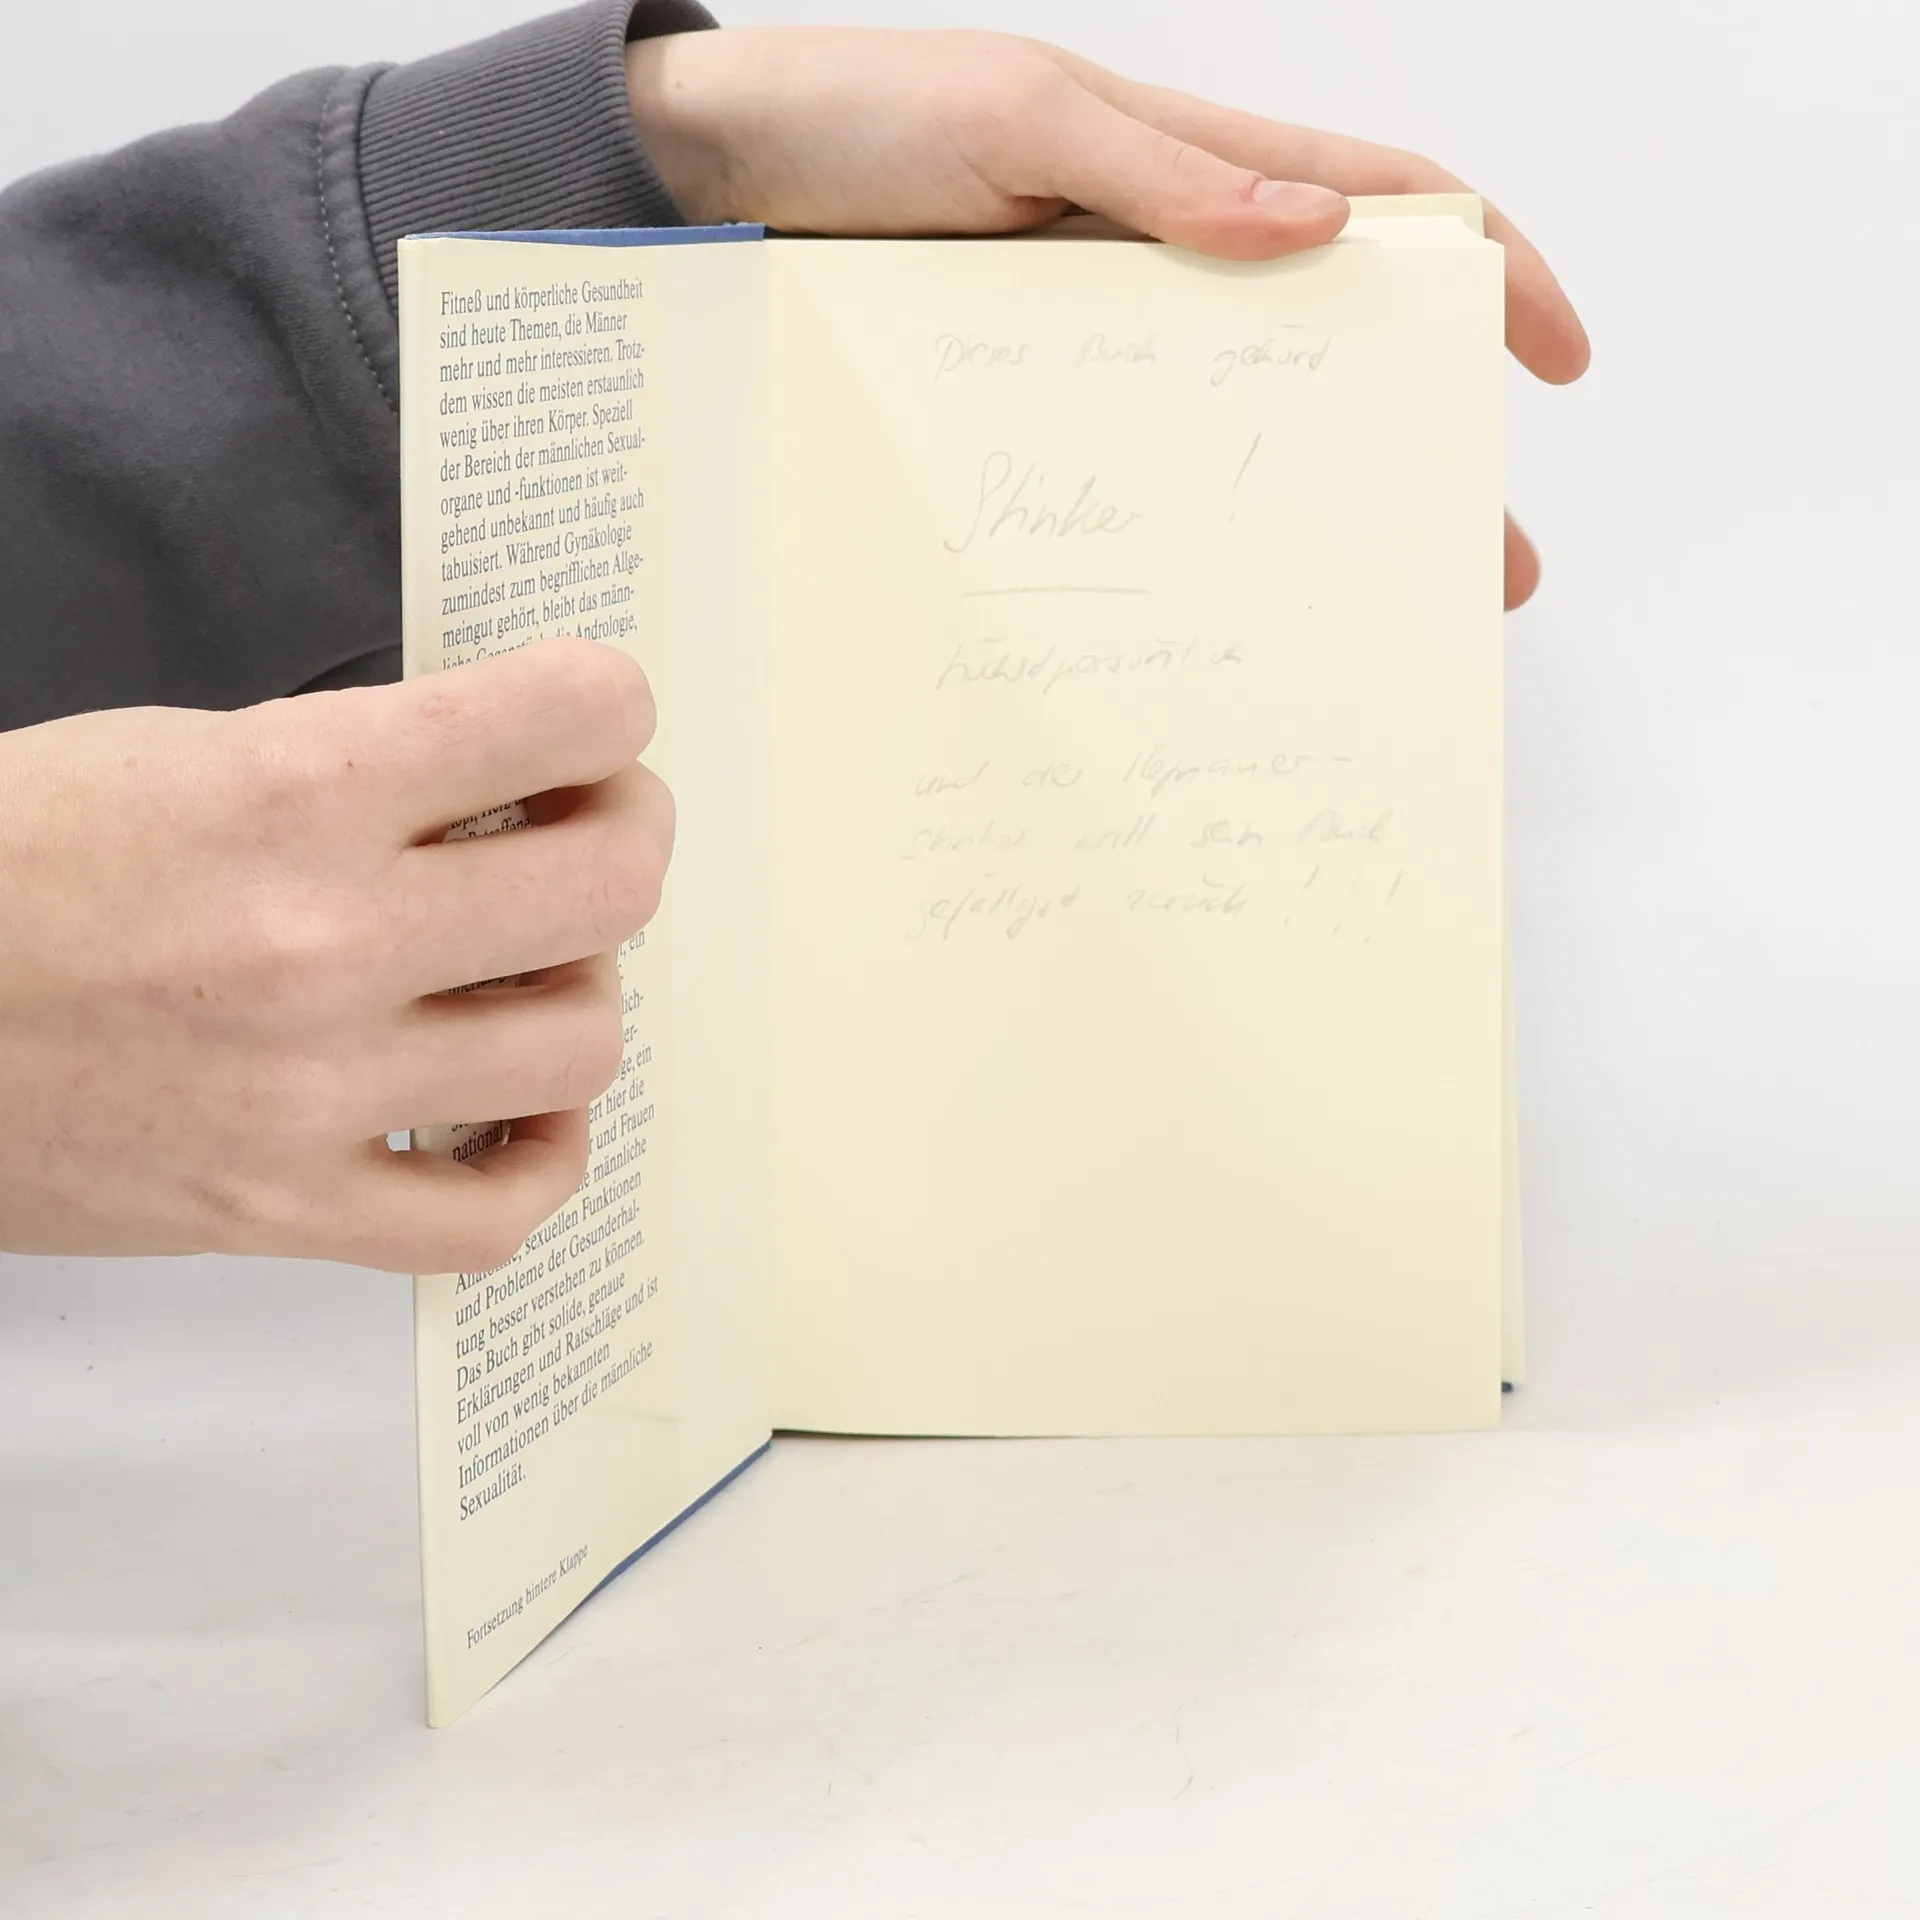 Fitneß und körperliche Gesundheit
sind heute Themen, die Männer
mehr und mehr interessieren. Trotz-
dem wissen die meisten erstaunlich
wenig über ihren Körper. Speziell
der Bereich der männlichen Sexual-
organe und -funktionen ist weit-
gehend unbekannt und häufig auch
tabuisiert. Während Gynäkologie
zumindest zum begrifflichen Allge-
meingut gehört, bleibt das männ-
Andrologie,
ein
lich-
er-
ein
hier die
und Frauen
männliche
sexuellen Funktionen
und Probleme der Gesunderhal-
tung besser verstehen zu können.
Das Buch gibt solide, genaue
Erklärungen und Ratschläge und ist
voll von wenig bekannten
Informationen über die männliche
Sexualität.
Fortsetzung hintere Klappe
Dieses Buch gehörd
Stinker !
höchstpersönlich
und der
will sein Buch
gefälligst zurück ! ! !